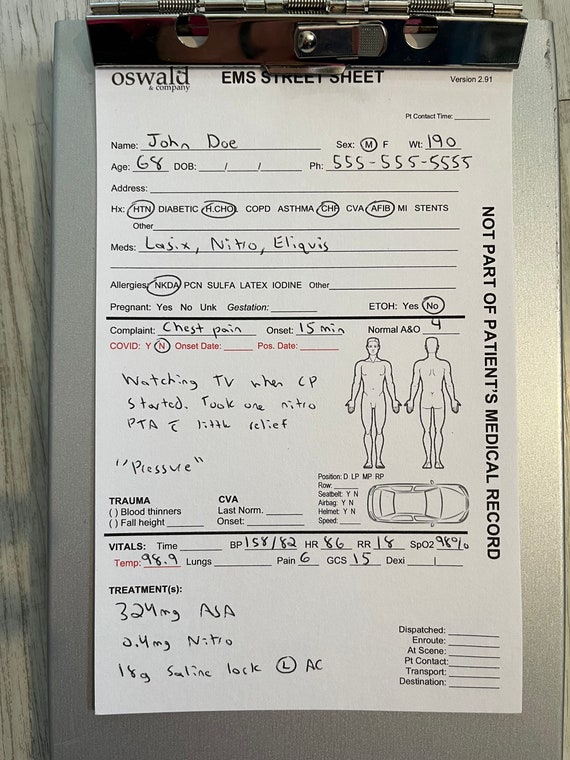 oswald
& company
EMS STREET SHEET
Version 2.91
Pt Contact Time:
Name: John Doe Sex: M F Wt: 190
Age: 68 DOB: / / Ph: 555-555-5555
Address:
Hx: HTN DIABETIC H.CHOL COPD ASTHMA CHF CVA AFIB MI STENTS
Other
Meds: Lasix, Nitro, Eliquis
Allergies: NKDA PCN SULFA LATEX IODINE Other
Pregnant: Yes No Unk Gestation: ETOH: Yes No
Complaint: Chest pain Onset: 15 min Normal A&O 4
COVID: Y N Onset Date: Pos. Date:
Watching TV when CP
started. Took one nitro
PTA c̄ little relief
"Pressure"
Position: D LP MP RP
Row:
Seatbelt: Y N
Airbag: Y N
Helmet: Y N
Speed:
TRAUMA
( ) Blood thinners
( ) Fall height
CVA
Last Norm.
Onset:
VITALS: Time BP 158/82 HR 86 RR 18 SpO2 98%
Temp: 98.9 Lungs Pain 6 GCS 15 Dexi
TREATMENT(s):
324mg ASA
0.4mg Nitro
18g Saline lock L AC
Dispatched:
Enroute:
At Scene:
Pt Contact:
Transport:
Destination:
NOT PART OF PATIENT'S MEDICAL RECORD